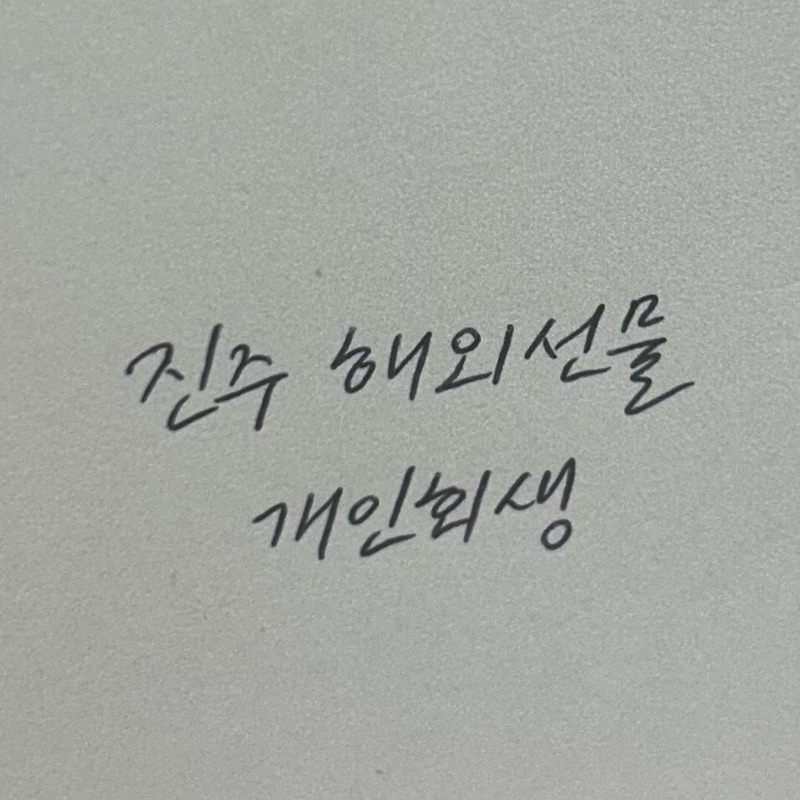 진주 해외선물
개인회생